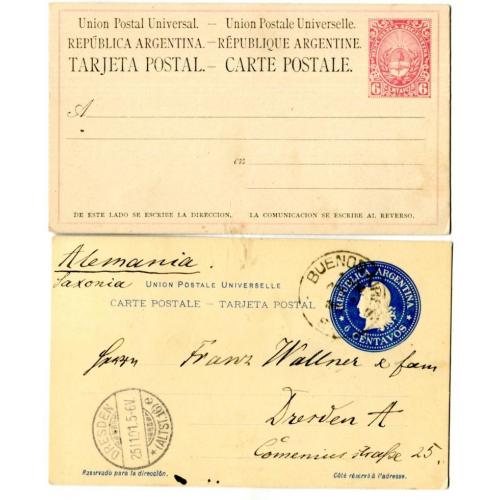 Union Postal Universal. — Union Postale Universelle.
REPÚBLICA ARGENTINA. — RÉPUBLIQUE ARGENTINE.
TARJETA POSTAL. — CARTE POSTALE.
6 CENTAVOS 6
A
en
DE ESTE LADO SE ESCRIBE LA DIRECCION.
LA COMUNICACION SE ESCRIBE AL REVERSO.
Alemania
Saxonia
UNION POSTALE UNIVERSELLE
CARTE POSTALE - TARJETA POSTAL
BUENOS
REPUBLICA ARGENTINA
6 CENTAVOS
Herrn Franz Wallner & fam
Dresden A
Comeniusstraße 25.
DRESDEN
25/1.01.5-6V.
(ALTST.)
Reservado para la dirección.
Côté réservé à l'adresse.